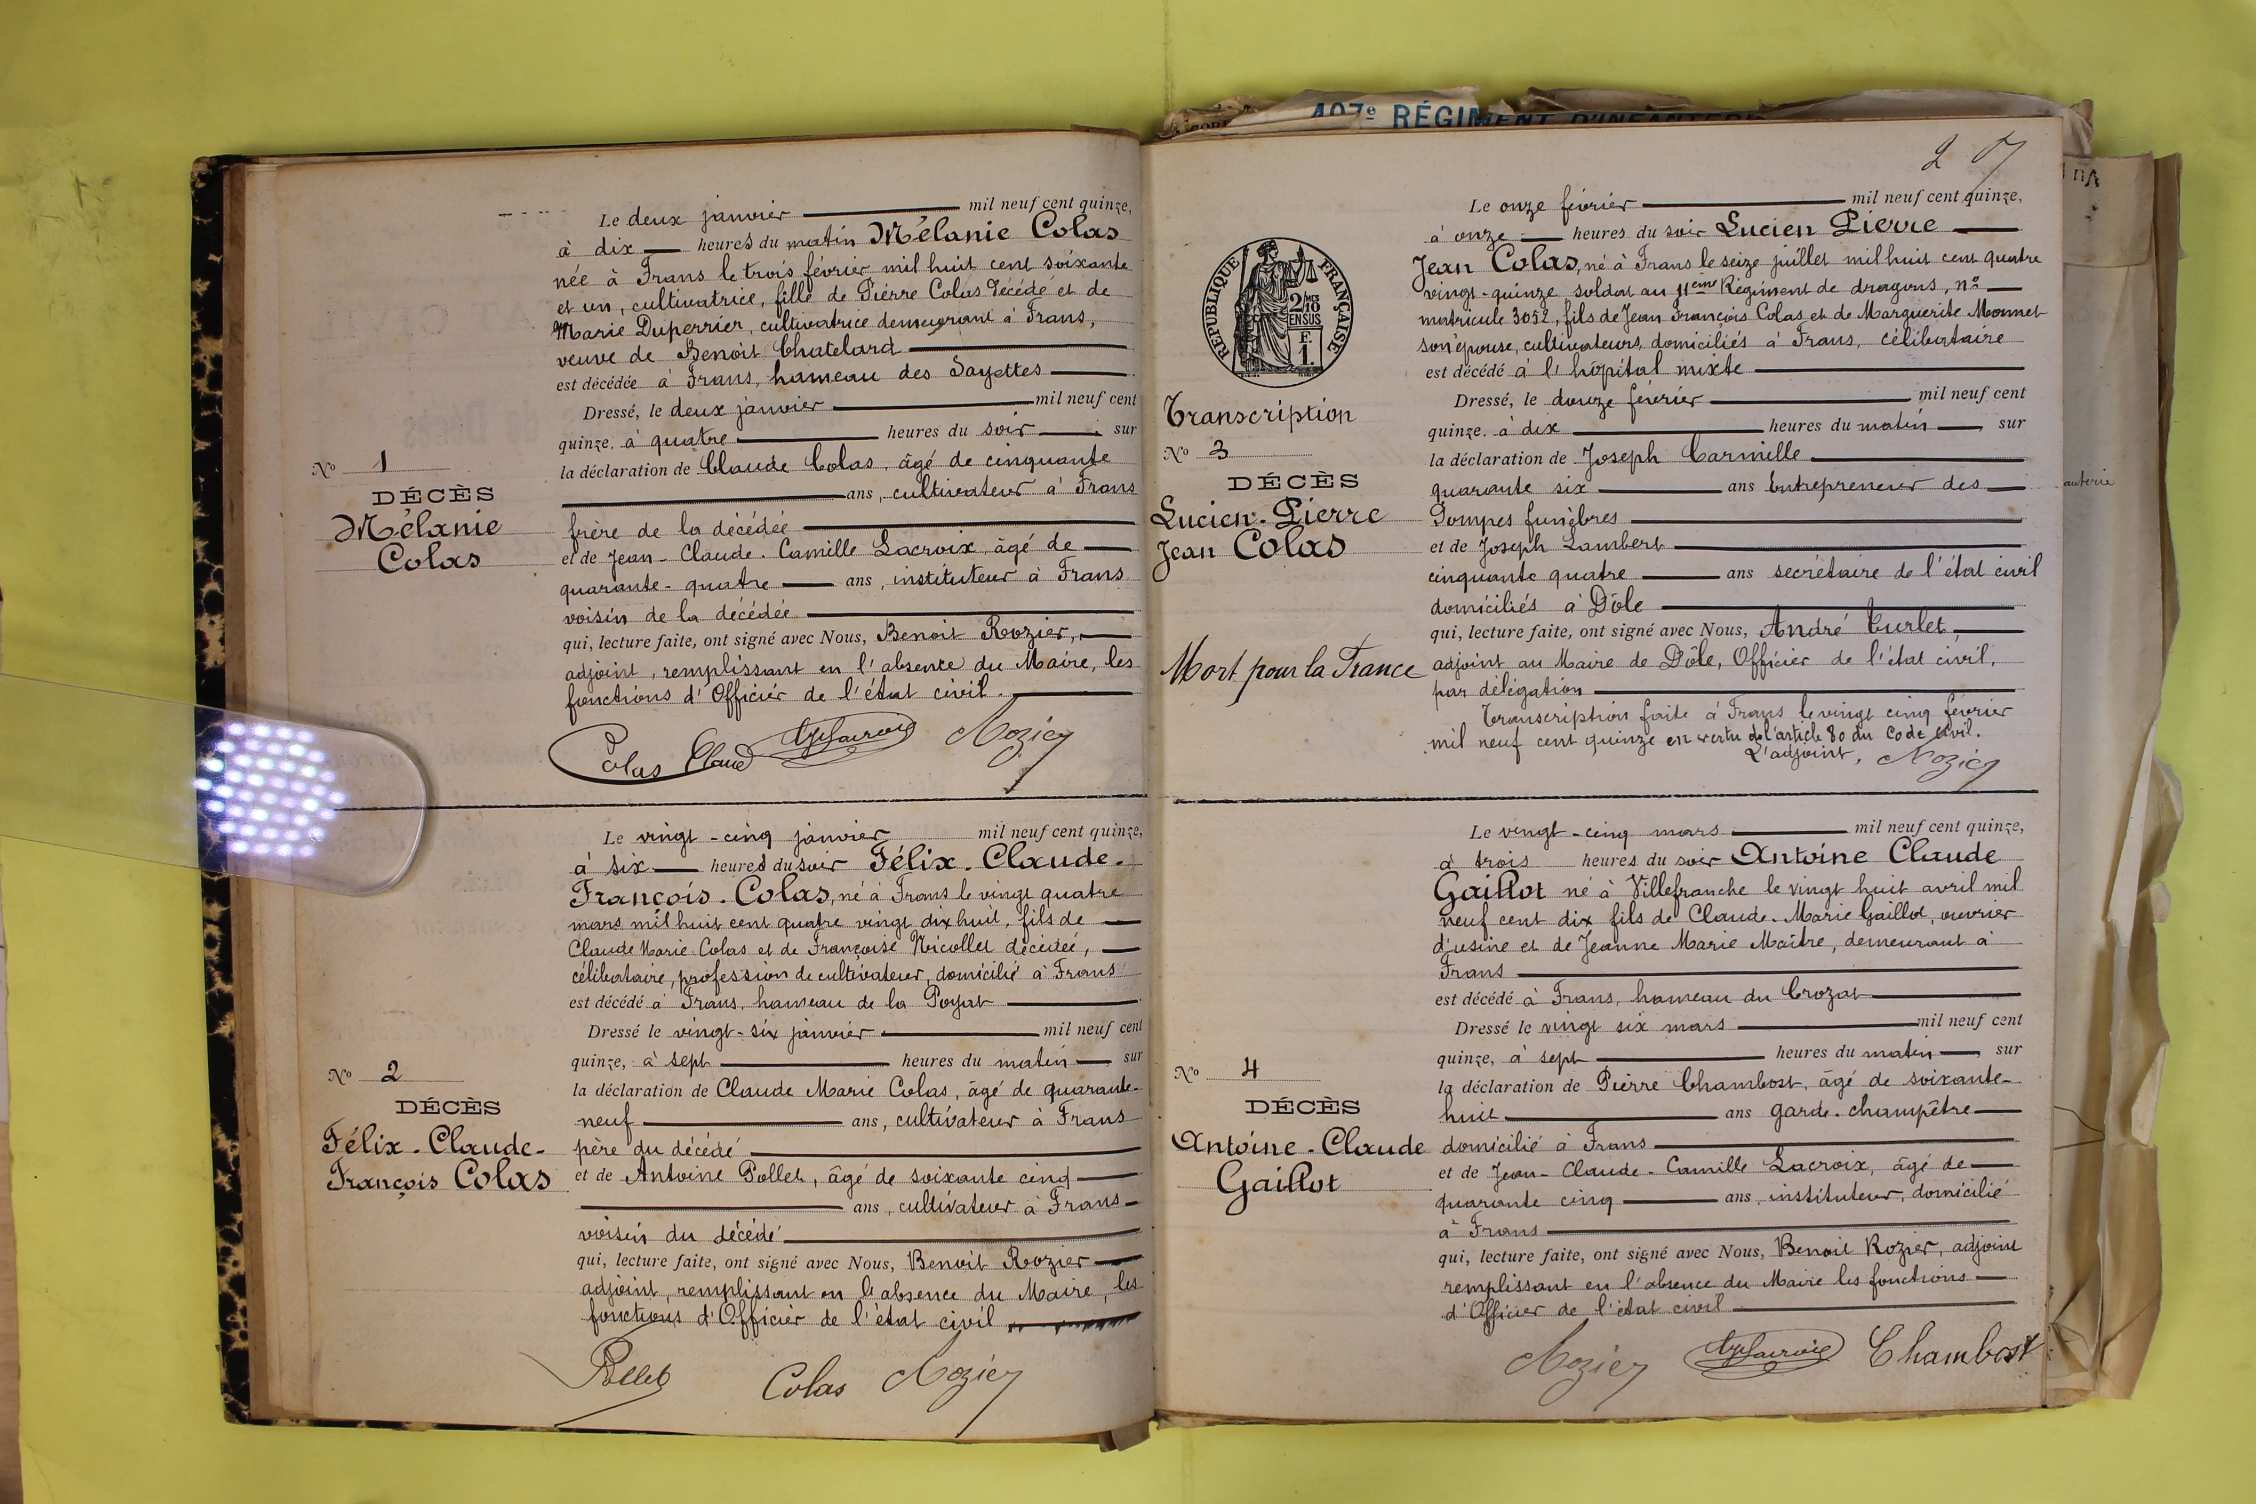 Le deux janvier mil neuf cent quinze,
à dix heures du matin Mélanie Colas
née à Frans le trois février mil huit cent soixante
et un, cultivatrice, fille de Pierre Colas décédé et de
Marie Duperrier, cultivatrice demeurant à Frans,
veuve de Benoit Chatelard
est décédée à Frans, hameau des Sayettes
Dressé, le deux janvier mil neuf cent
quinze. à quatre heures du soir sur
la déclaration de Claude Colas, âgé de cinquante
ans, cultivateur à Frans
frère de la décédée
et de Jean-Claude-Camille Lacroix, âgé de
quarante-quatre ans, instituteur à Frans
voisin de la décédée
qui, lecture faite, ont signé avec Nous, Benoit Rozier,
adjoint, remplissant en l'absence du Maire, les
fonctions d'Officier de l'état civil.
Colas Claud Lacroix Rozier
No 1
DÉCÈS
Mélanie
Colas
Le vingt-cinq janvier mil neuf cent quinze,
à six heures du soir Félix-Claude-
François-Colas, né à Frans le vingt quatre
mars mil huit cent quatre vingt dix huit, fils de
Claude Marie Colas et de Françoise Nicollet décédée,
célibataire, profession de cultivateur, domicilié à Frans
est décédé à Frans, hameau de la Poyat
Dressé le vingt-six janvier mil neuf cent
quinze, à sept heures du matin sur
la déclaration de Claude Marie Colas, âgé de quarante-
neuf ans, cultivateur à Frans
père du décédé
et de Antoine Pollet, âgé de soixante cinq
ans, cultivateur à Frans
voisin du décédé
qui, lecture faite, ont signé avec Nous, Benoit Rozier
adjoint, remplissant en l'absence du Maire, les
fonctions d'Officier de l'état civil
Pollet Colas Rozier
No 2
DÉCÈS
Félix-Claude-
François Colas
RÉGIMENT D'INFANTERIE
2
Le onze février mil neuf cent quinze,
à onze heures du soir Lucien Pierre
Jean Colas, né à Frans le seize juillet mil huit cent quatre
vingt-quinze soldat au 11eme Régiment de dragons, no
matricule 3052, fils de Jean François Colas et de Marguerite Monnet
son épouse, cultivateurs, domiciliés à Frans, célibataire
est décédé à l'hôpital mixte
Dressé, le douze février mil neuf cent
quinze. à dix heures du matin, sur
la déclaration de Joseph Carmille
quarante six ans Entrepreneur des
Pompes funèbres
et de Joseph Lambert
cinquante quatre ans secrétaire de l'état civil
domiciliés à Dôle
qui, lecture faite, ont signé avec Nous, André Turlet,
adjoint au Maire de Dôle, Officier de l'état civil,
par délégation
Transcription faite à Frans le vingt cinq février
mil neuf cent quinze en vertu de l'article 80 du Code civil.
L'adjoint, Rozier
RÉPUBLIQUE FRANÇAISE
2/10
EN SUS
F.
1.
Transcription
No 3
DÉCÈS
Lucien-Pierre
Jean Colas
Mort pour la France
Le vingt-cinq mars mil neuf cent quinze,
à trois heures du soir Antoine Claude
Gaillot né à Villefranche le vingt huit avril mil
neuf cent dix fils de Claude-Marie Gaillot, ouvrier
d'usine et de Jeanne Marie Maître, demeurant à
Frans
est décédé à Frans, hameau du Crozat
Dressé le vingt six mars mil neuf cent
quinze, à sept heures du matin, sur
la déclaration de Pierre Chambost, âgé de soixante-
huit ans garde-champêtre
domicilié à Frans
et de Jean-Claude-Camille Lacroix, âgé de
quarante cinq ans, instituteur, domicilié
à Frans
qui, lecture faite, ont signé avec Nous, Benoit Rozier, adjoint
remplissant en l'absence du Maire les fonctions
d'Officier de l'état civil
Rozier Lacroix Chambost
No 4
DÉCÈS
Antoine-Claude
Gaillot